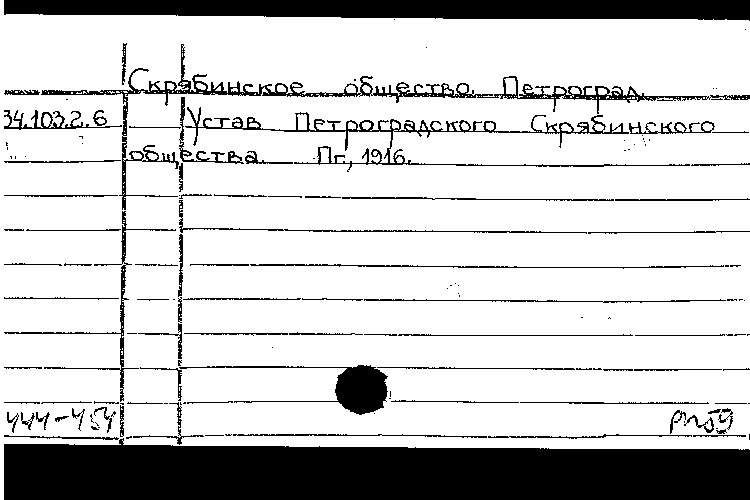 Скрябинское общество. Петроград.
34.103.2.6 Устав Петроградского Скрябинского
общества. Пг, 1916.
444-454